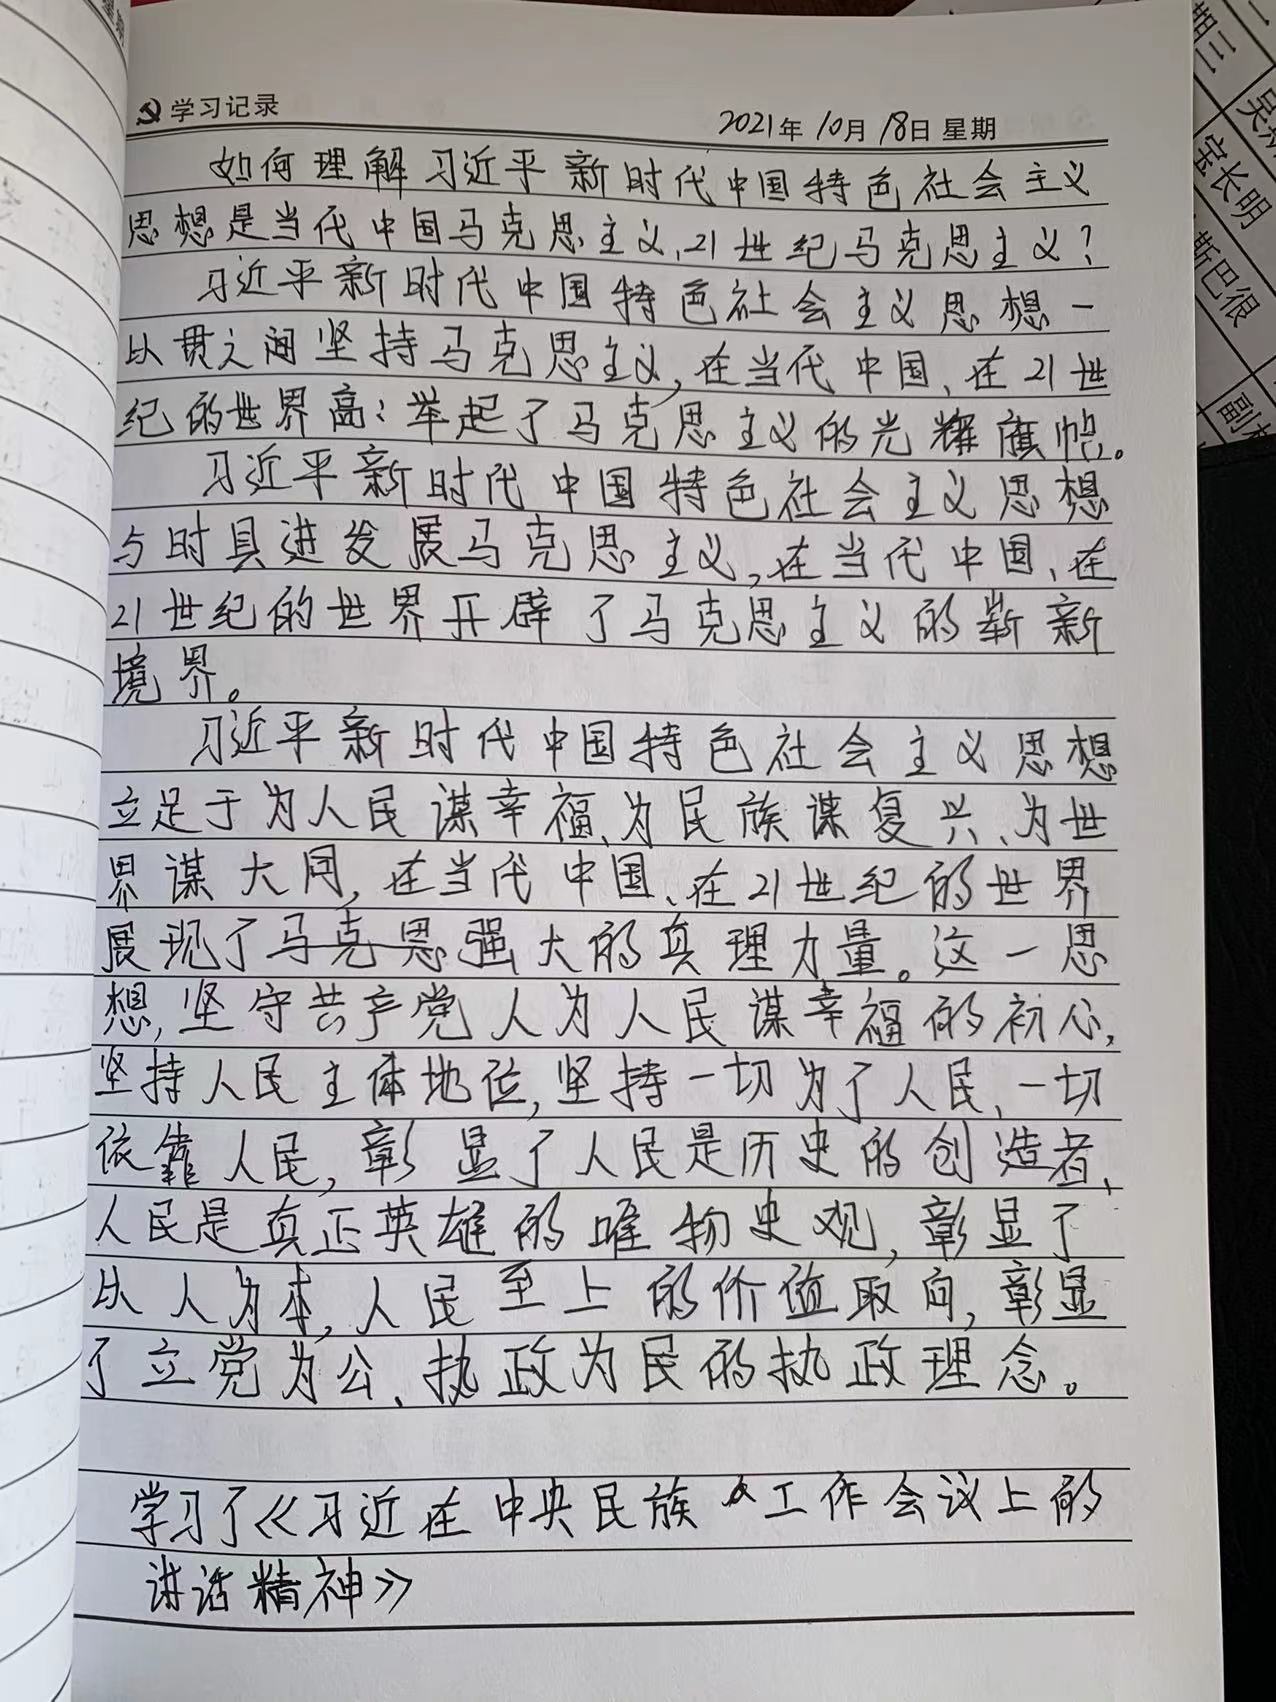 学习记录
2021年 10月 18日 星期
如何理解习近平新时代中国特色社会主义
思想是当代中国马克思主义、21世纪马克思主义?
习近平新时代中国特色社会主义思想一
以贯之地坚持马克思主义,在当代中国、在21世
纪的世界高举起了马克思主义的光辉旗帜。
习近平新时代中国特色社会主义思想
与时具进发展马克思主义,在当代中国、在
21世纪的世界开辟了马克思主义的崭新
境界。
习近平新时代中国特色社会主义思想
立足于为人民谋幸福、为民族谋复兴、为世
界谋大同,在当代中国、在21世纪的世界
展现了马克思强大的真理力量。这一思
想,坚守共产党人为人民谋幸福的初心,
坚持人民主体地位,坚持一切为了人民、一切
依靠人民,彰显了人民是历史的创造者、
人民是真正英雄的唯物史观,彰显了
以人为本,人民至上的价值取向,彰显
了立党为公、执政为民的执政理念。
学习了《习近在中央民族工作会议上的
讲话精神》
期三
宝长明
斯巴很
副